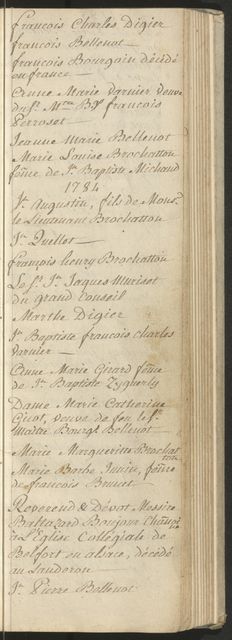 françois Charles Digier
françois Bellenot
françois Bourgoin décédé
en france
Anne Marie Varnier veuve
du Sr. Mtre. Bt. françois
Perroset
Jeanne Marie Bellenot
Marie Louise Brochatton
feme. de Jn. Baptiste Michaud
1784
Jn. Augustin, fils de Mons.
le Lieutenant Brochatton
Jn. Quellet
françois henry Brochatton
Le Sr. Jn. Jaques Muriset
du grand Conseil
Marthe Digier
Jn. Baptiste francois Charles
Varnier
Anne Marie Girard feme.
de Jn. Baptiste
Dame Marie Catherine
Gicot, veuve de feu le Sr.
Maitre Bourgs. Bellenot
Marie Margueritte Brochatton
Marie Barbe feme.
de francois Brunet
Reverend & Dévot Messire
Baltazard Bonjour Chanoi.
à l'Eglise Collégiale de
Belfort en alsace, décédé
au Landeron
Jn. Pierre Bellenot